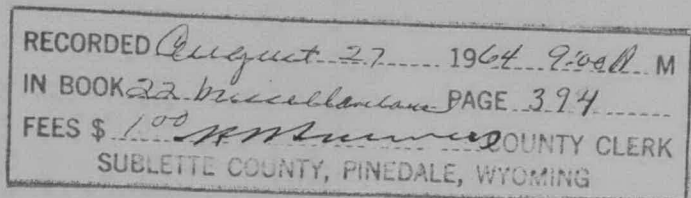 RECORDED August 27 1964 9:00 A M
IN BOOK 22 Miscellaneous PAGE 394
FEES $ 1.00 COUNTY CLERK
SUBLETTE COUNTY, PINEDALE, WYOMING